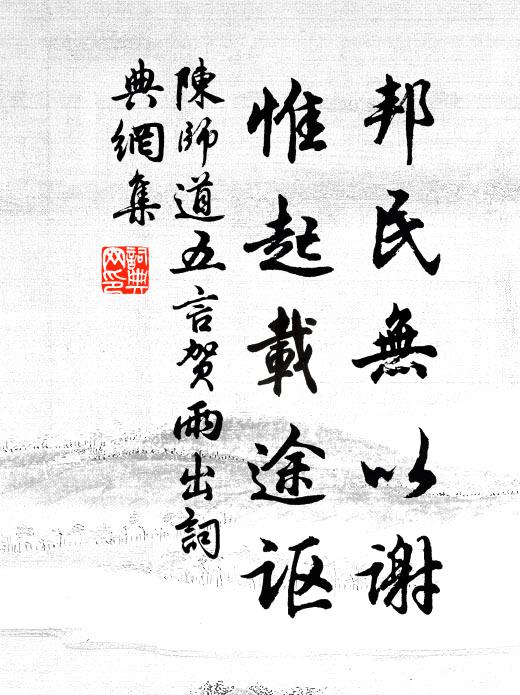 邦民無以謝
惟起載途讴
陳師道五言賀雨出詞
典網集
詞典
网印